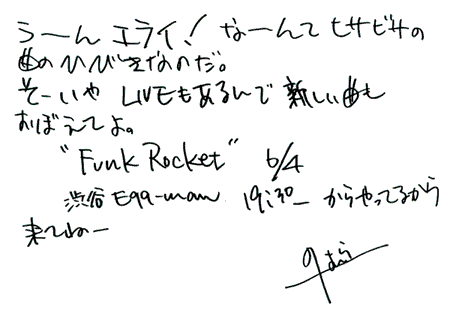 うーん エライ! なーんて ヒサビサの
曲のひびきなのだ。
そーいや LIVEもあるんで 新しい曲も
おぼえてよ。
"Funk Rocket" 6/4
渋谷 Egg-man 19:30〜 からやってるから
来てねー